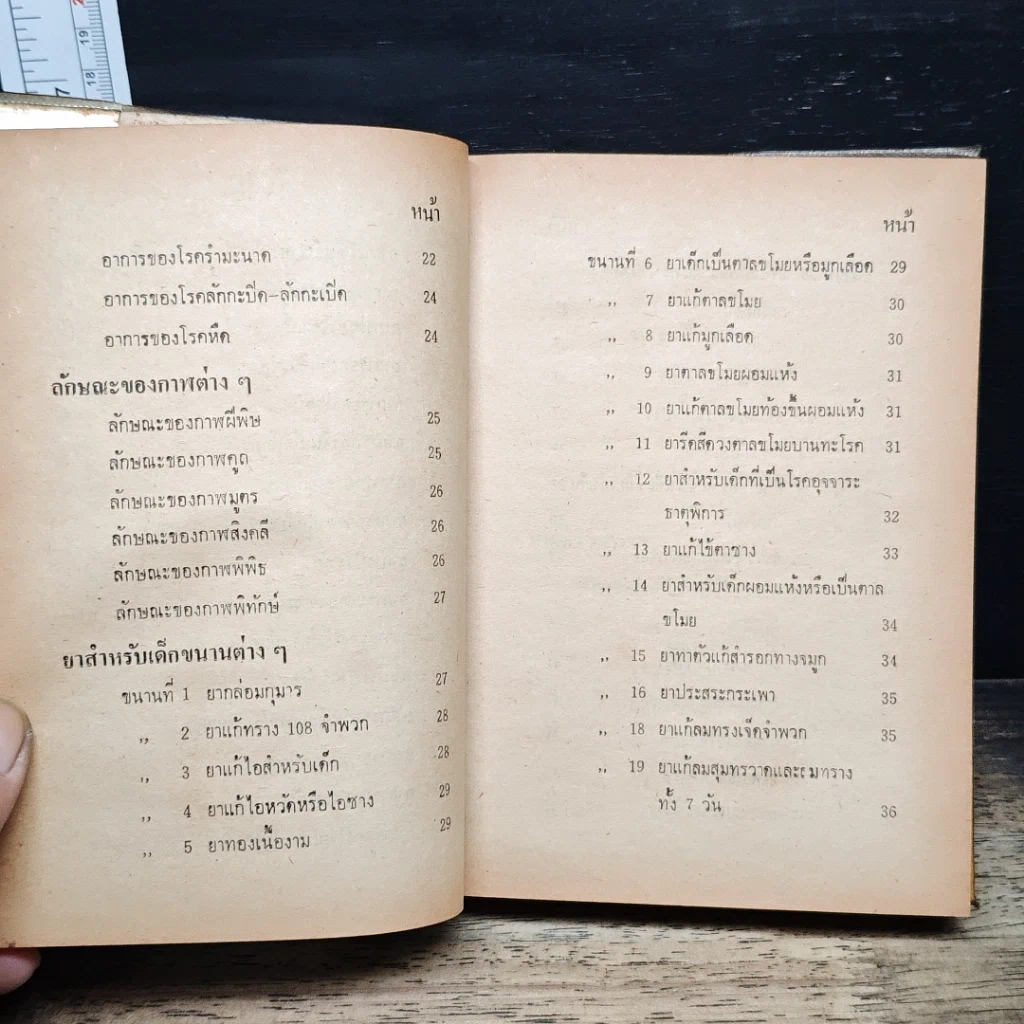 หน้า
อาการของโรครำมะนาด 22
อาการของโรคลักกะปิด-ลักกะเปิด 24
อาการของโรคหืด 24
ลักษณะของกาฬต่าง ๆ
ลักษณะของกาฬฝีพิษ 25
ลักษณะของกาฬคูถ 25
ลักษณะของกาฬมูตร 26
ลักษณะของกาฬสิงคลี 26
ลักษณะของกาฬพิพิธ 26
ลักษณะของกาฬพิทักษ์ 27
ยาสำหรับเด็กขนานต่าง ๆ
ขนานที่ 1 ยากล่อมกุมาร 27
,, 2 ยาแก้ทราง 108 จำพวก 28
,, 3 ยาแก้ไอสำหรับเด็ก 28
,, 4 ยาแก้ไอหวัดหรือไอซาง 29
,, 5 ยาทองเนื้องาม 29
หน้า
ขนานที่ 6 ยาเด็กเป็นตาลขโมยหรือมูกเลือด 29
,, 7 ยาแก้ตาลขโมย 30
,, 8 ยาแก้มูกเลือด 30
,, 9 ยาตาลขโมยผอมแห้ง 31
,, 10 ยาแก้ตาลขโมยท้องขึ้นผอมแห้ง 31
,, 11 ยารีดสีดวงตาลขโมยบานทะโรค 31
,, 12 ยาสำหรับเด็กที่เป็นโรคอุจจาระ
ธาตุพิการ 32
,, 13 ยาแก้ไข้ตาซาง 33
,, 14 ยาสำหรับเด็กผอมแห้งหรือเป็นตาล
ขโมย 34
,, 15 ยาทาตัวแก้สำรอกทางจมูก 34
,, 16 ยาประสระกระเพา 35
,, 18 ยาแก้ลมทรงเจ็ดจำพวก 35
,, 19 ยาแก้ลมสุมทรวาดและลมทราง
ทั้ง 7 วัน 36
17
18
19